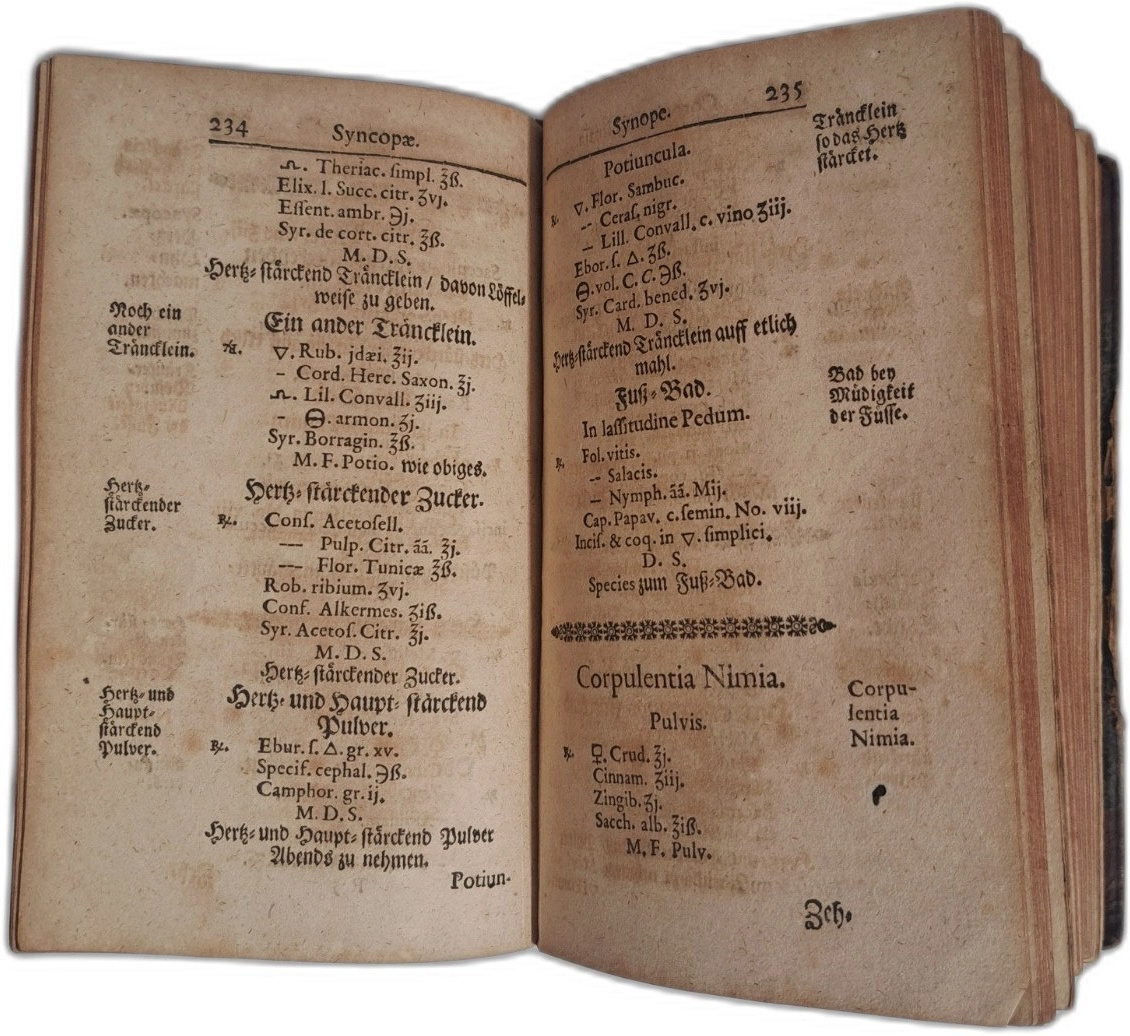 234 Syncopæ.
♎. Theriac. simpl. ℥ß.
Elix. l. Succ. citr. ʒvj.
Essent. ambr. ℈j.
Syr. de cort. citr. ℥ß.
M. D. S.
Hertz-stärckend Träncklein / davon Löffel-
weise zu geben.
Noch ein
ander
Träncklein.
Ein ander Träncklein.
℞. 🜄. Rub. jdæi. ℥ij.
- Cord. Herc. Saxon. ℥j.
♎. Lil. Convall. ʒiij.
- 🜔. armon. ʒj.
Syr. Borragin. ℥ß.
M. F. Potio. wie obiges.
Hertz-
stärckender
Zucker.
Hertz-stärckender Zucker.
℞. Conſ. Acetoſell.
--- Pulp. Citr. āā. ℥j.
--- Flor. Tunicæ ℥ß.
Rob. ribium. ʒvj.
Conſ. Alkermes. ʒiß.
Syr. Acetoſ. Citr. ℥j.
M. D. S.
Hertz-stärckender Zucker.
Hertz-und
Haupt-
stärckend
Pulver.
Hertz-und Haupt-stärckend
Pulver.
℞. Ebur. ſ. △. gr. xv.
Specif. cephal. ℈ß.
Camphor. gr. ij.
M. D. S.
Hertz-und Haupt-stärckend Pulver
Abends zu nehmen.
Potiun-
Synope. 235
Träncklein
so das Hertz
stärcket.
Potiuncula.
℞. 🜄. Flor. Sambuc.
-- Ceraſ. nigr.
-- Lill. Convall. c. vino ʒiij.
Ebor. ſ. △. ʒß.
🜔. vol. C. C. ℈ß.
Syr. Card. bened. ʒvj.
M. D. S.
Hertz-stärckend Träncklein auff etlich
mahl.
Bad bey
Müdigkeit
der Füsse.
Fuß-Bad.
In lassitudine Pedum.
℞. Fol. vitis.
-- Salacis.
-- Nymph. āā. Mij.
Cap. Papav. c. semin. No. viij.
Inciſ. & coq. in 🜄. simplici.
D. S.
Species zum Fuß-Bad.
Corpulentia Nimia.
Corpu-
lentia
Nimia.
Pulvis.
℞. ♀. Crud. ℥j.
Cinnam. ʒiij.
Zingib. ʒj.
Sacch. alb. ℥iß.
M. F. Pulv.
Zeh-